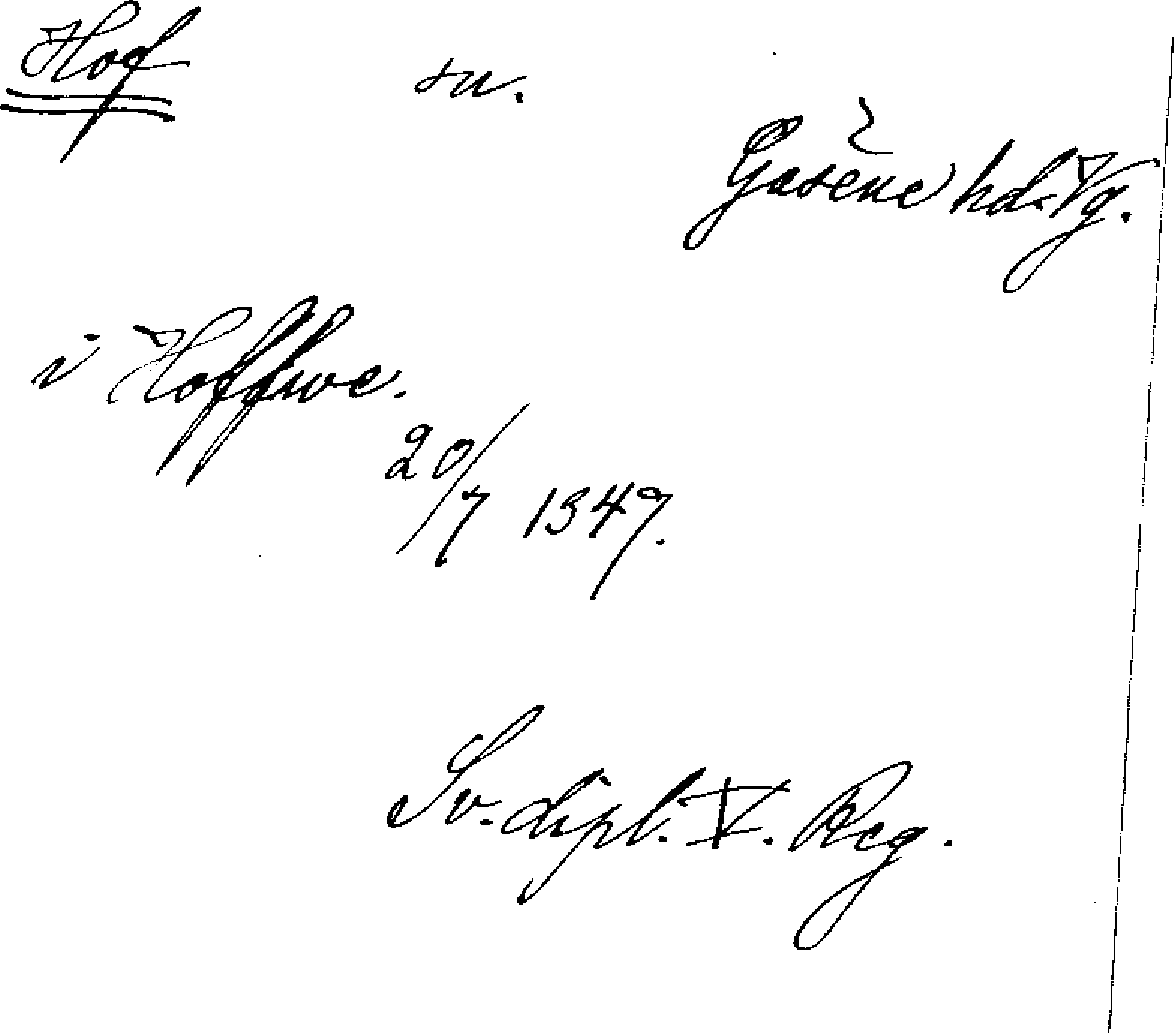 Hof sn.
Gäsene hd. Vg.
i Hoffwe.
20/7 1347.
Sv. dipl. V. Reg.